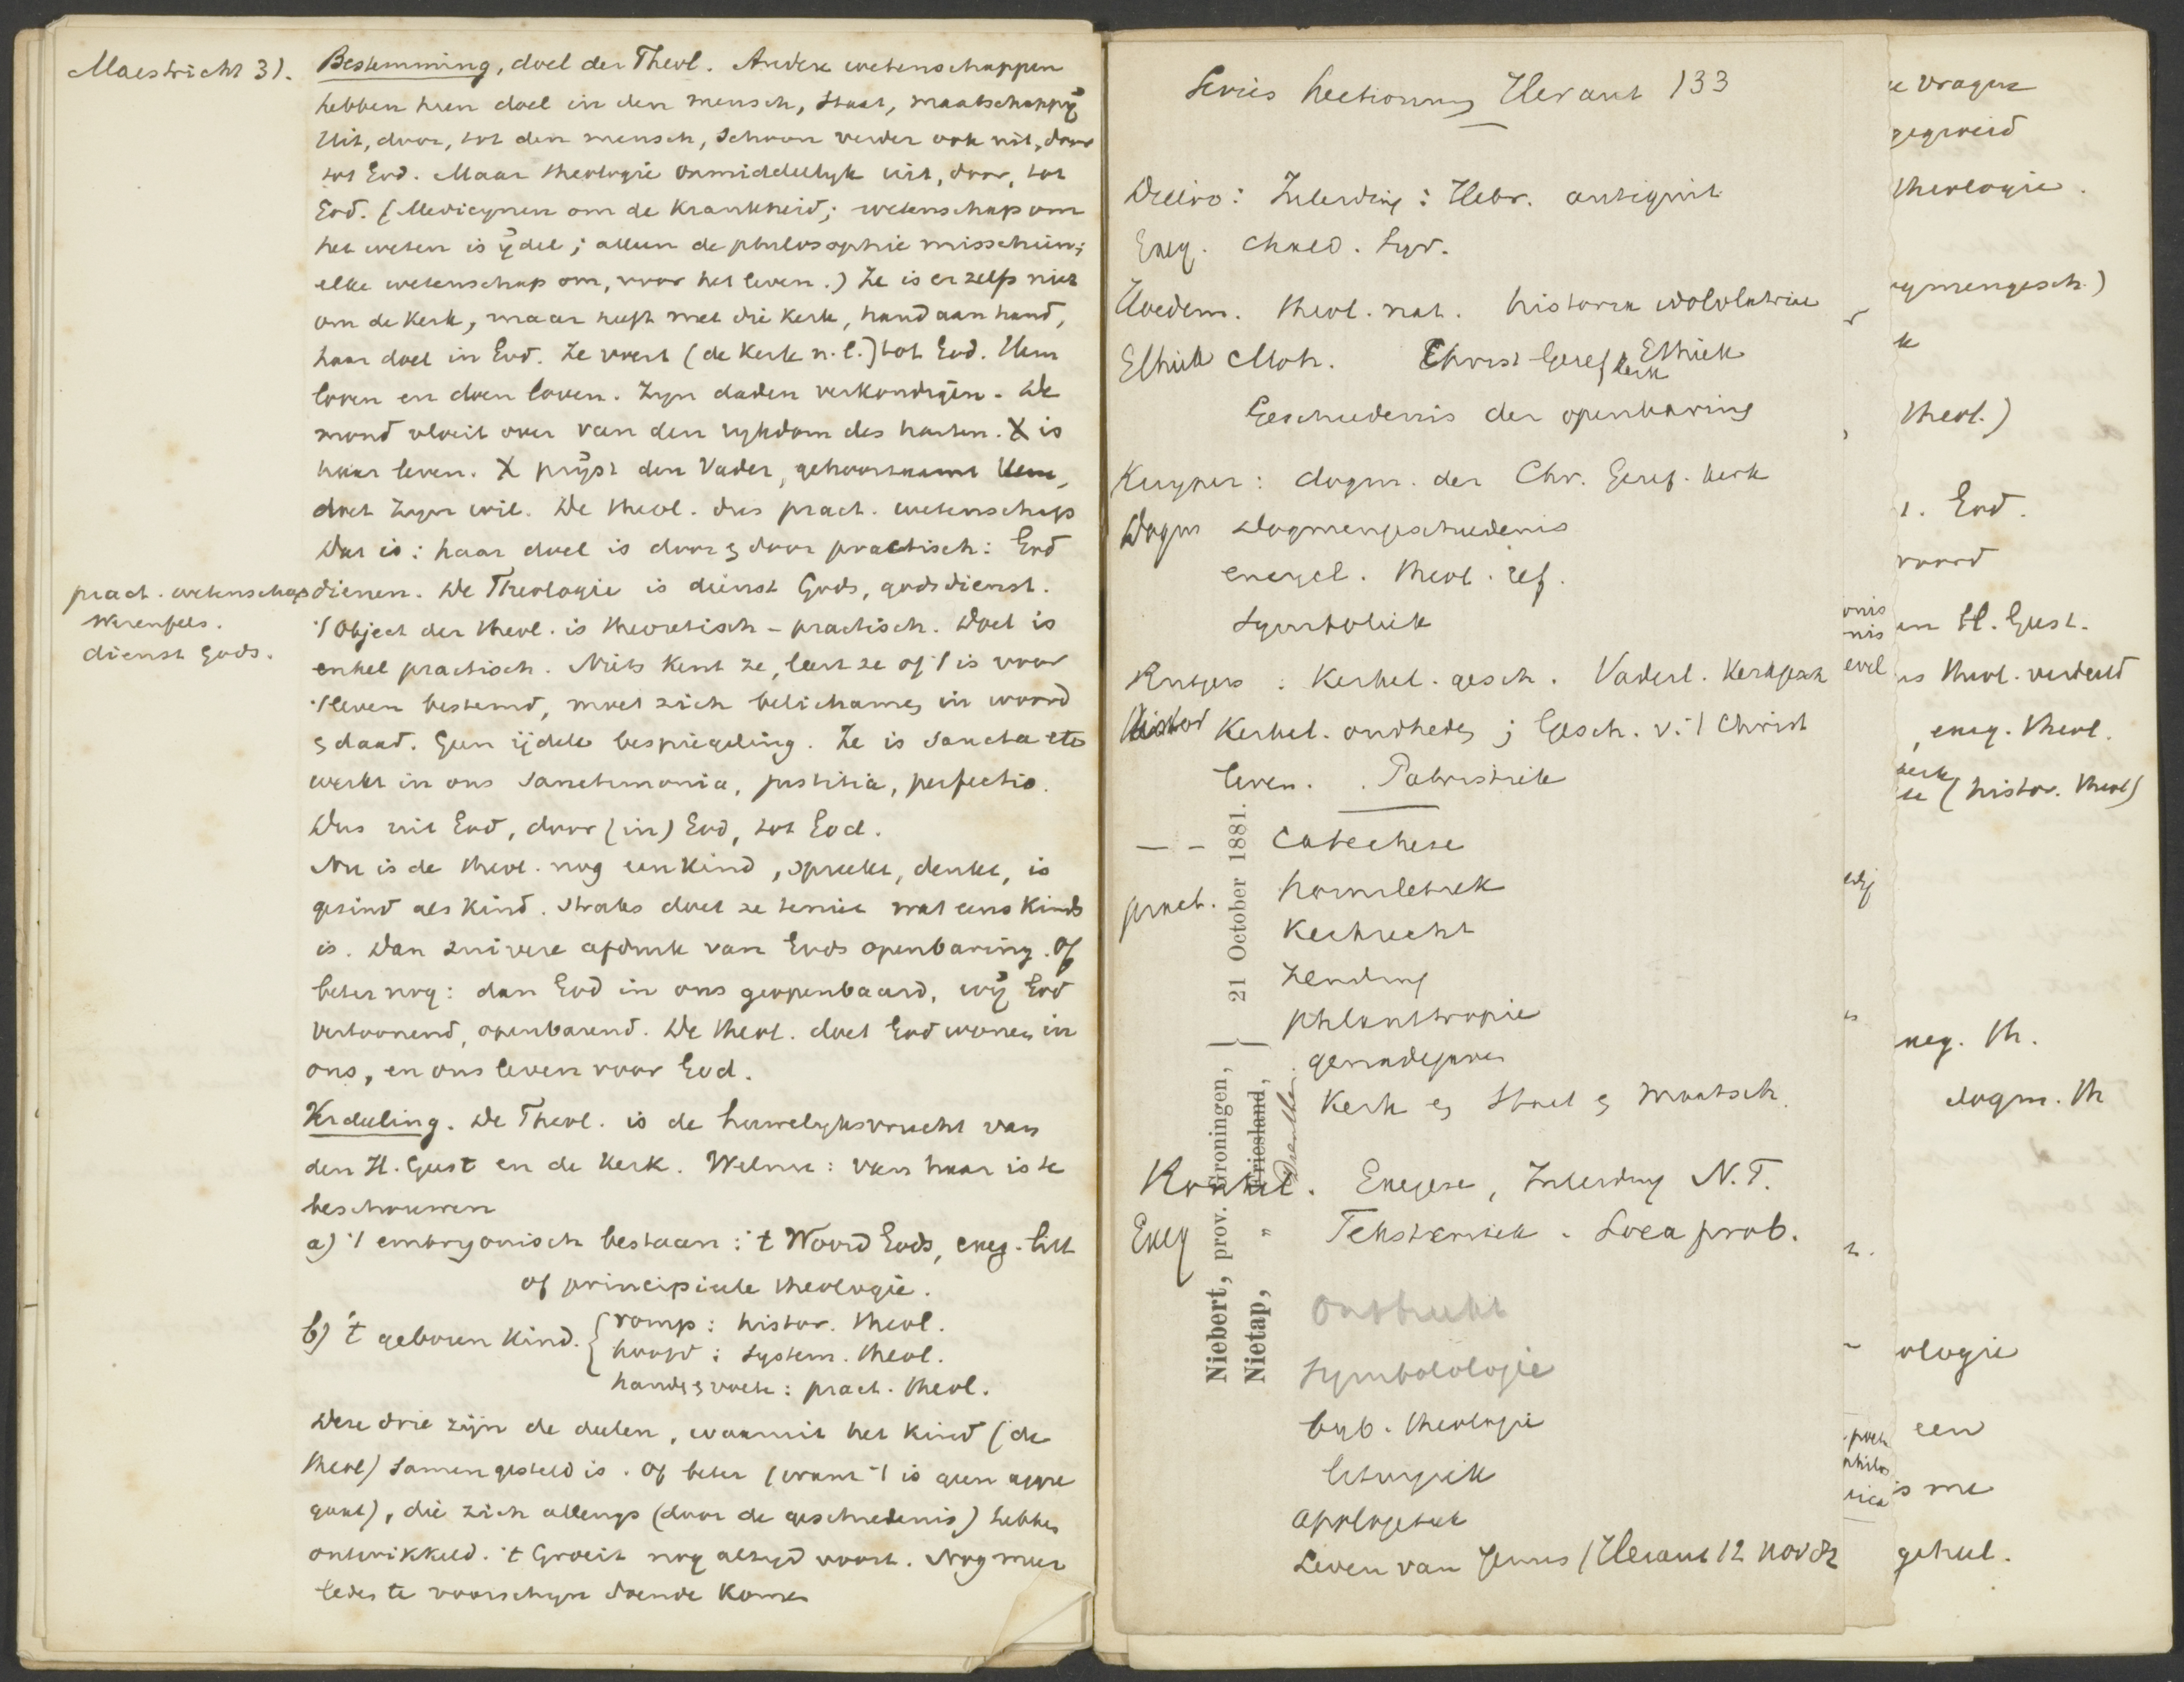 Maestricht 31.
Bestemming, doel der Theol. Andere wetenschappen
hebben hun doel in den mensch, Staat, maatschappij
Uit, door, tot den mensch, schoon verder ook uit, door
tot God. Maar theologie onmiddellijk uit, door, tot
God. (Medicynen om de Krankheid; wetenschap om
het weten is ijdel; alleen de philosophie misschien;
elke wetenschap om, voor het leven.) Ze is er zelfs niet
om de Kerk, maar heeft met die Kerk, hand aan hand,
haar doel in God. Ze voert (de Kerk n.l.) tot God. Hem
loven en doen loven. Zyn daden verkondigen. De
mond vloeit over van den rykdom des harten. X is
haar leven. X prijst den Vader, gehoorzaamt Hem,
doet Zyn wil. De theol. dus pract. wetenschap
Dat is: haar doel is door & door practisch: God
pract. wetenschap
dienen. De Theologie is dienst Gods, godsdienst.
Werenfels.
't Object der theol. is theoretisch - practisch. Doel is
dienst Gods.
enkel practisch. Niets kent ze, leert ze of 't is voor
't leven bestemd, moet zich belichamen in woord
& daad. Geen ijdele bespiegeling. Ze is sancta etc
werkt in ons sanctimonia, justitia, perfectio.
Dus uit God, door (in) God, tot God.
Nu is de theol. nog een Kind, spreekt, denkt, is
gezind als Kind. Straks doet ze teniet wat eens Kinds
is. Dan zuivere afdruk van Gods openbaring. Of
beter nog: dan God in ons geopenbaard, wij God
vertoonend, openbarend. De theol. doet God wonen in
ons, en ons leven voor God.
Verdeeling. De Theol. is de huwelyksvrucht van
den H. Geest en de Kerk. Welnu: van haar is te
beschouwen
a) 't embryonisch bestaan: 't Woord Gods, exeg. litt
of principieele theologie.
b) 't geboren Kind. { romp: histor. theol.
hoofd: system. theol.
hand & voet: pract. theol.
Deze drie zijn de deelen, waaruit het Kind (de
theol) samengesteld is. Of beter (want 't is geen aggre
gaat), die zich allengs (door de geschiedenis) hebben
ontwikkeld. 't Groeit nog altyd voort. Nog meer
leden te voorschyn doende Komen
Series Lectionum Heraut 133
Dilloo: Inleiding: Hebr. antiquit
Exeg. Chald. Syr.
Hoedem. theol. nat. historia idololatriae
Ethiek Moh. Christ Geref kerk Ethiek
Geschiedenis der openbaring
Kuyper: dogm. der Chr. Geref. Kerk
Dogm Dogmengeschiedenis
encycl. theol. ref.
Symboliek
Rutgers: Kerkel. gesch. Vaderl. Kerkgesch
Histor Kerkel. oudheden; Gesch. v. 't Christ
leven. Patristiek
Catechese
pract. homiletiek
Kerkrecht
Zending
philanthropie
genadegaven
Kerk en Staat & Maatsch.
Exegese, Inleiding N.T.
Exeg Tekstcritiek. Loca prob.
Symbolologie
byb. theologie
liturgiek
apologetiek
Leven van Jezus (Heraut 12 nov 82
Niebert, prov. Groningen, } 21 October 1881.
Nietap, " Friesland,
Drenthe.
e vragen
gegroeid
theologie.
ogmengesch.)
k
theol.)
1. God.
woord
en H. Geest.
is theol. verdeeld
, exeg. theol.
(histor. theol)
xeg. th.
dogm. th
ologie
een
is me
geheel.